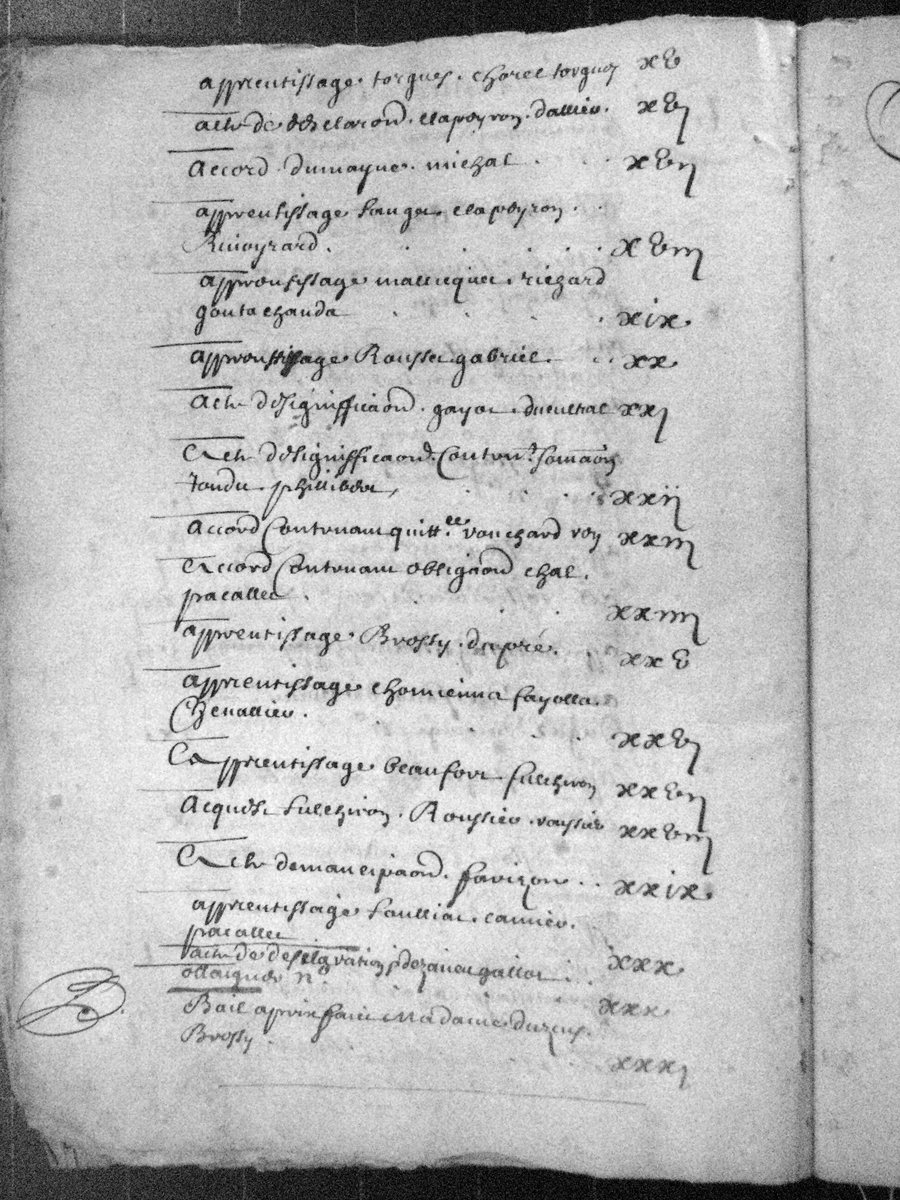 apprentissage torgues. chorel torgues xv
acte de desclaraon. clapeyron. dallier. xvj
Accord dumayne. michal . . . xvij
apprentissage lauget clapeyron . .
Rivoyrard . . . . . xviij
apprentissage mallicquet. richard
goutachauda . . . . xix
apprentissage Rousset gabriel . . . xx
Acte designifficaon. gayot. xxj
Acte designifficaon. Conten.t somaon
phillibert, . . . xxij
accord Contenant quitt.ce vouchard roy xxiij
Accord Contenant obligaon chal.
pacallet . . . . xxiiij
apprentissage Brossy. dupré. . xxv
apprentissage chomienna fayolla.
Chevallier. . . . . xxvj
Apprentissage beaufort fulchiron xxvij
Acquest fulchiron. Roussier roussier xxviij
Acte demancipaon. faviron . . xxix
apprentissage
pacallet xxx
acte de desclaration gallot . . .
xxx
Bail a prix faict Madame
Brossy. xxxj